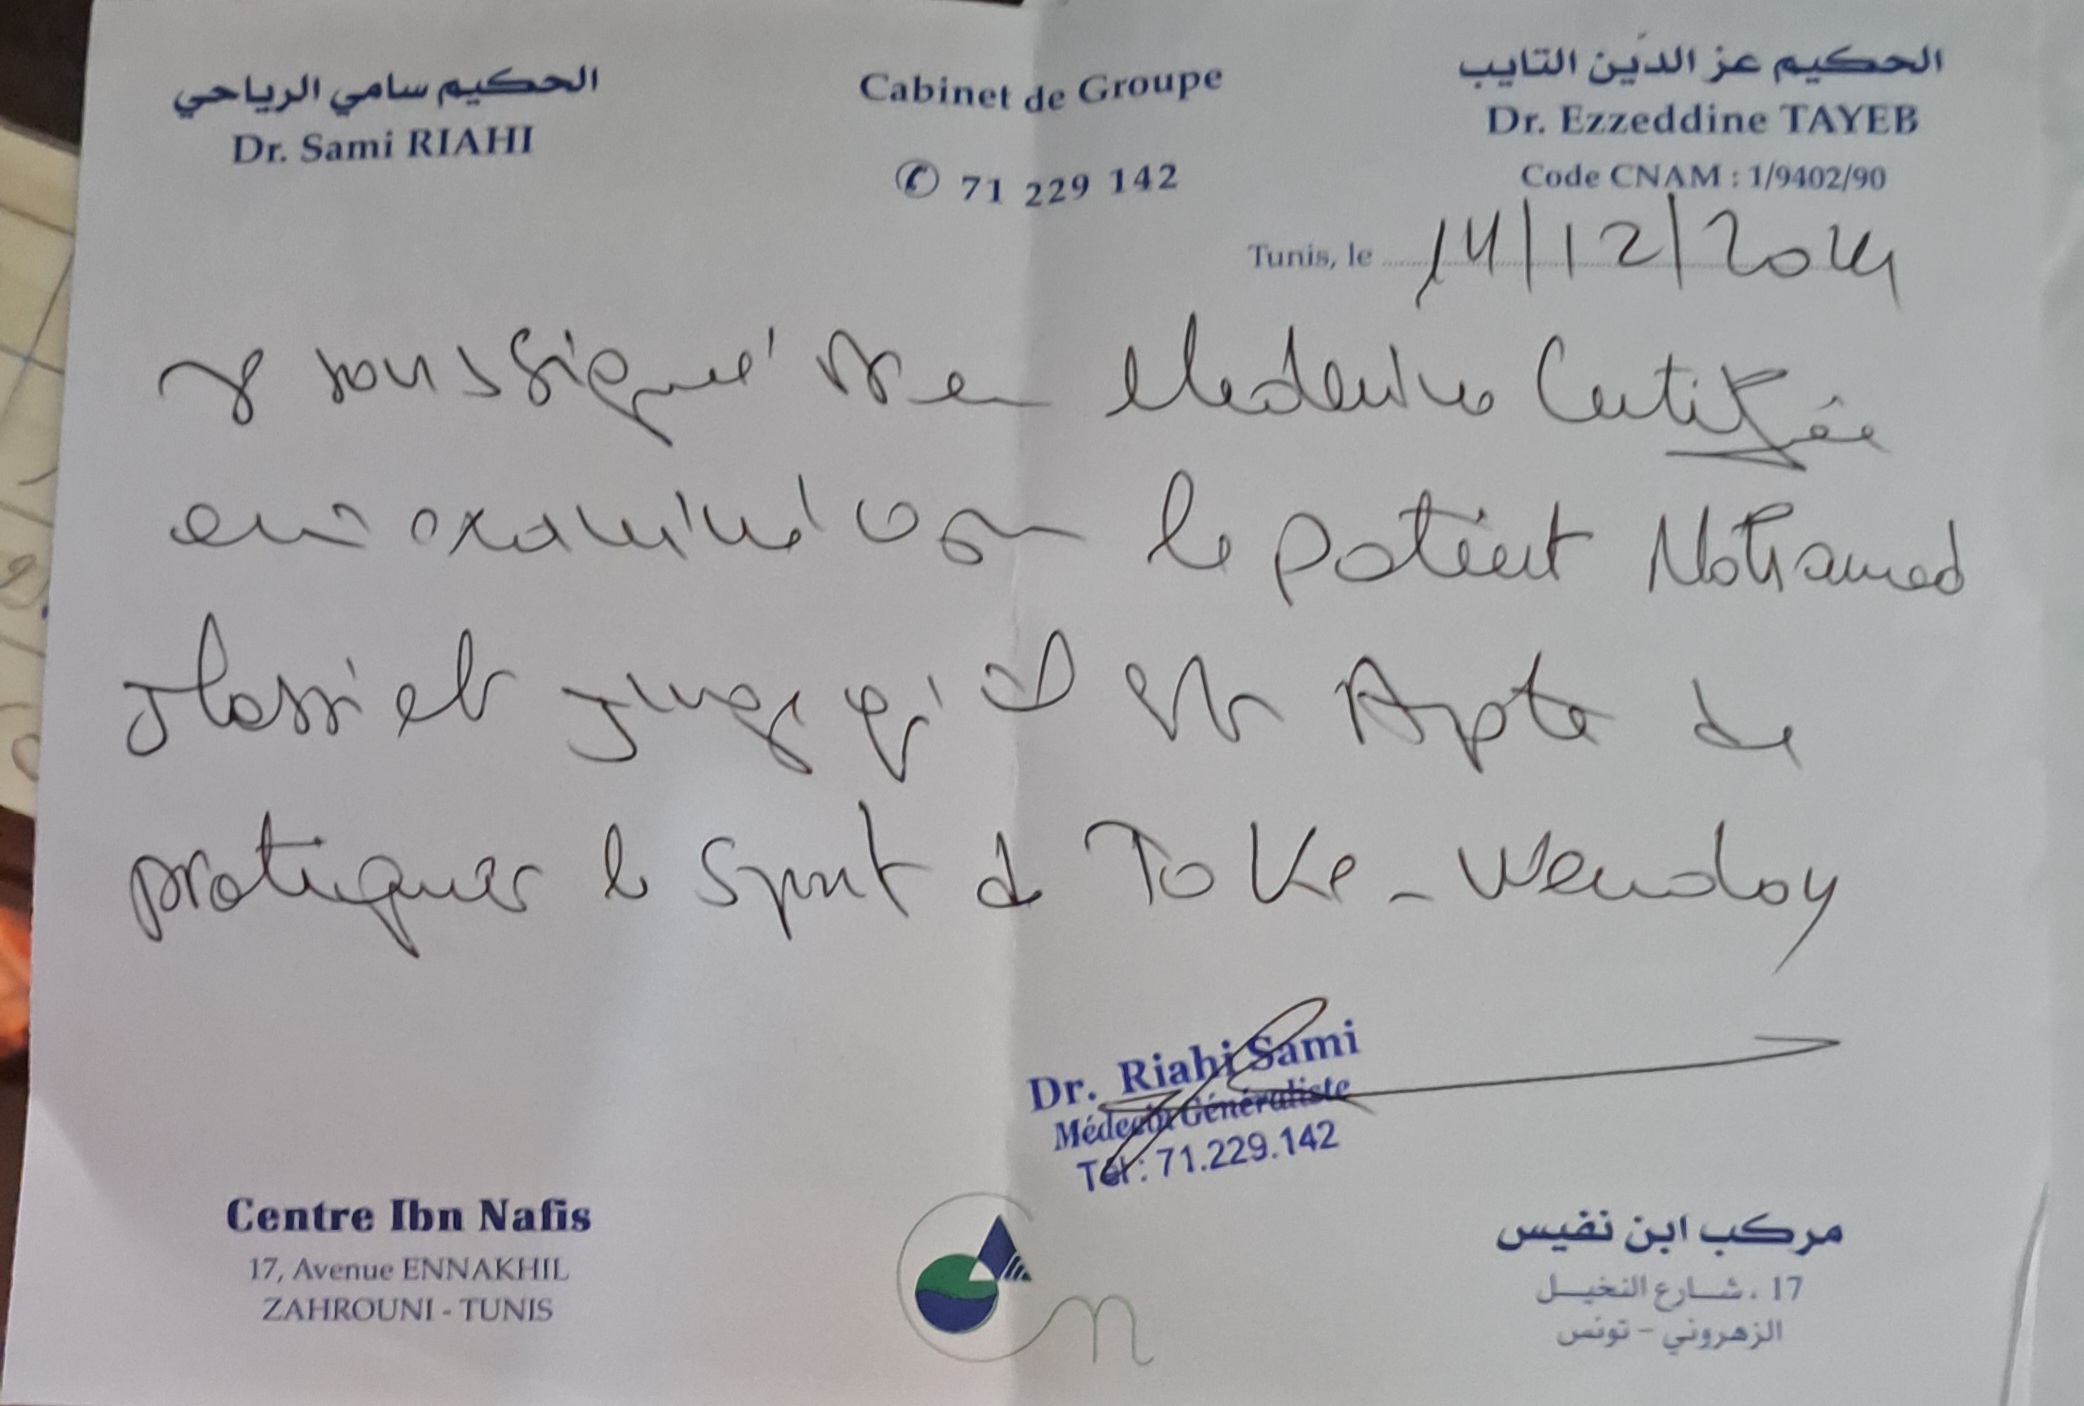 الحكيم سامي الرياحي
Dr. Sami RIAHI
Cabinet de Groupe
✆ 71 229 142
الحكيم عز الدين التايب
Dr. Ezzeddine TAYEB
Code CNAM : 1/9402/90
Tunis, le 14/12/2024
Je soussigné Dr en Medecine Certifie
avoir examiné ce jour le patient Mohamed
Jlassi et juge qu'il est Apte de
pratiquer le sport de Take-Wendoy
Dr. Riahi Sami
Médecin Généraliste
Tél : 71.229.142
Centre Ibn Nafis
17, Avenue ENNAKHIL
ZAHROUNI - TUNIS
مركب ابن نفيس
17 ، شارع النخيل
الزهروني - تونس